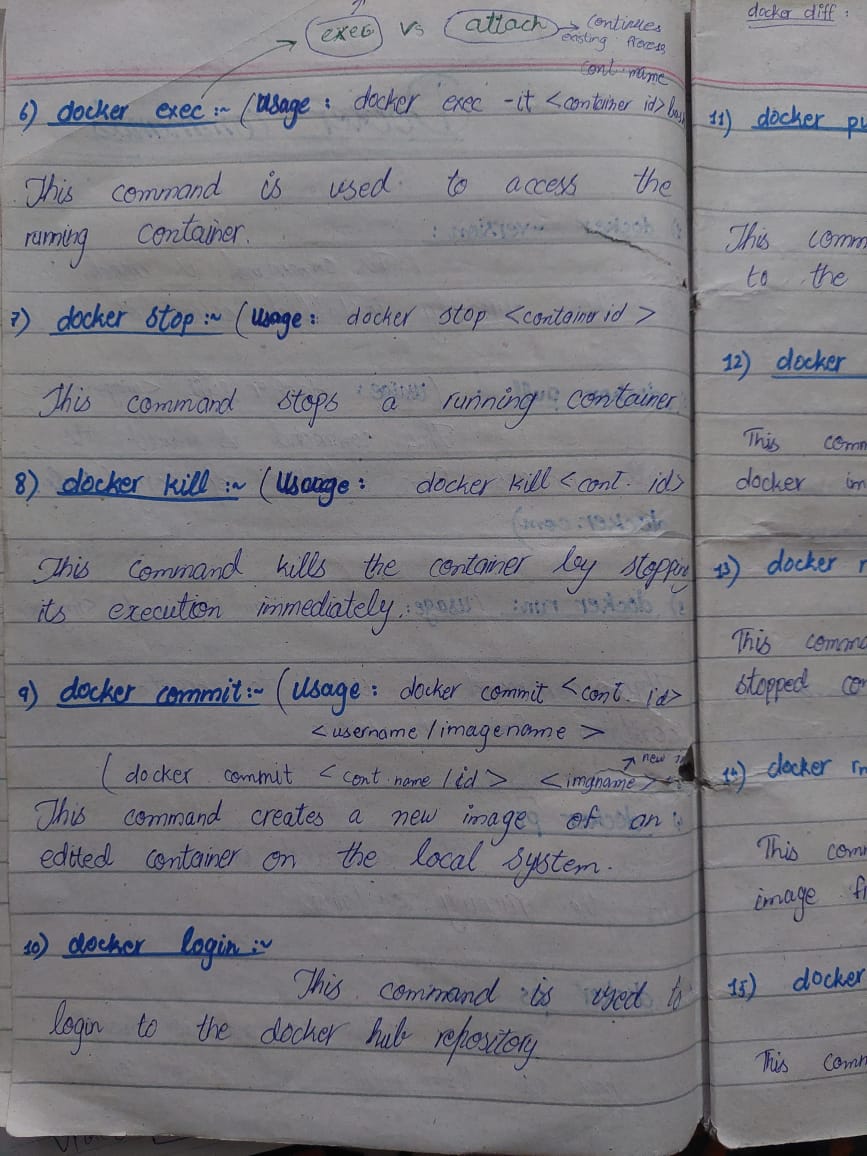 exec vs attach → continues
existing Process
cont. name
6) docker exec :~ (Usage : docker exec -it <container id>
This command is used to access the
running container.
7) docker stop :~ (Usage : docker stop <container id>
This command stops a running container.
8) docker kill :~ (Usage : docker kill <cont. id>
This command kills the container by stopping
its execution immediately.
9) docker commit :~ (Usage : docker commit <cont. id>
<username/imagename>
new
(docker commit <cont name/id> <imgname>
This command creates a new image of an
edited container on the local system.
10) docker login :~
This command is used to
login to the docker hub repository
docker diff :
11) docker pu
This comm
to the
12) docker
This comm
docker im
13) docker r
This comma
stopped con
14) docker rm
This comm
image fr
15) docker
This comm